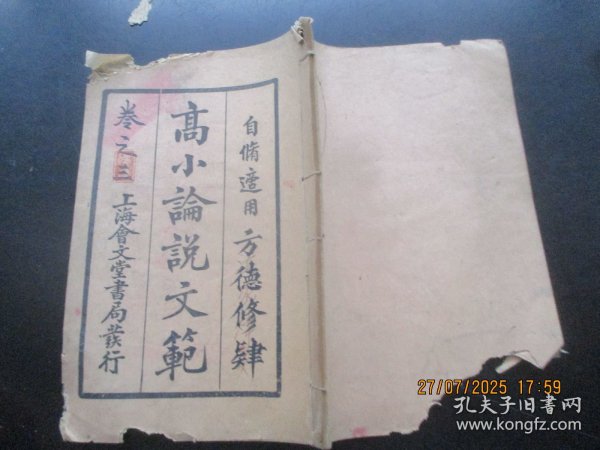 自脩適用 方德修肄
高小論説文範
卷之三 上海會文堂書局發行
27/07/2025 17:59
孔夫子旧书网
www.kongfz.com